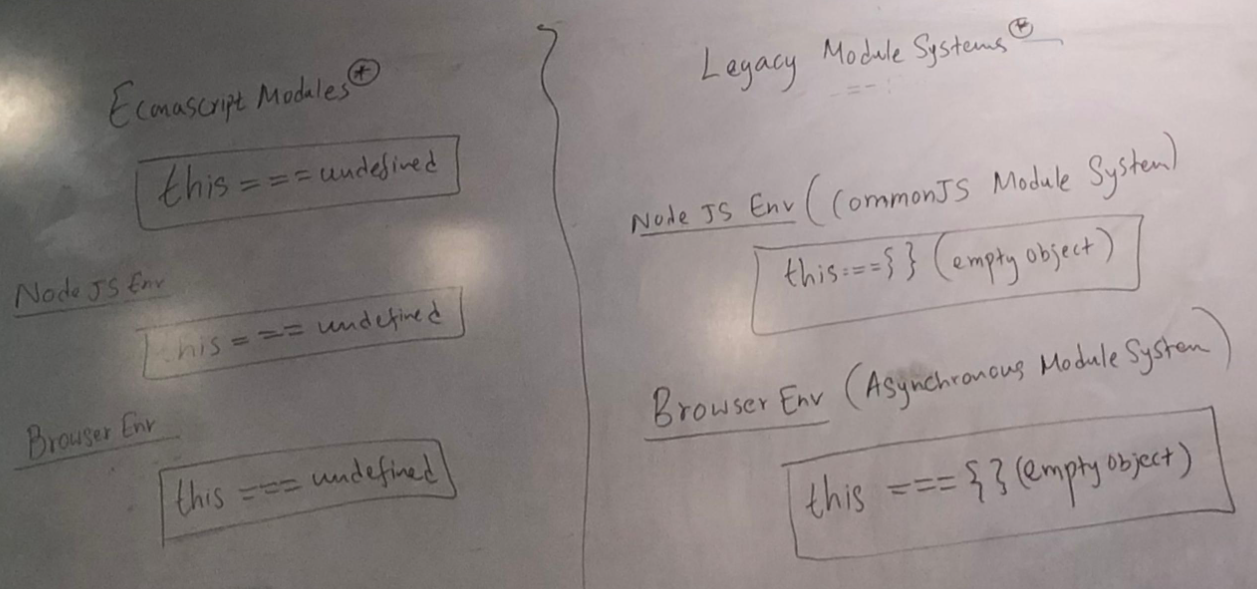 Ecmascript Modules +
this === undefined
Node JS Env
this === undefined
Browser Env
this === undefined
Legacy Module Systems +
Node JS Env (CommonJS Module System)
this === { } (empty object)
Browser Env (Asynchronous Module System)
this === { } (empty object)